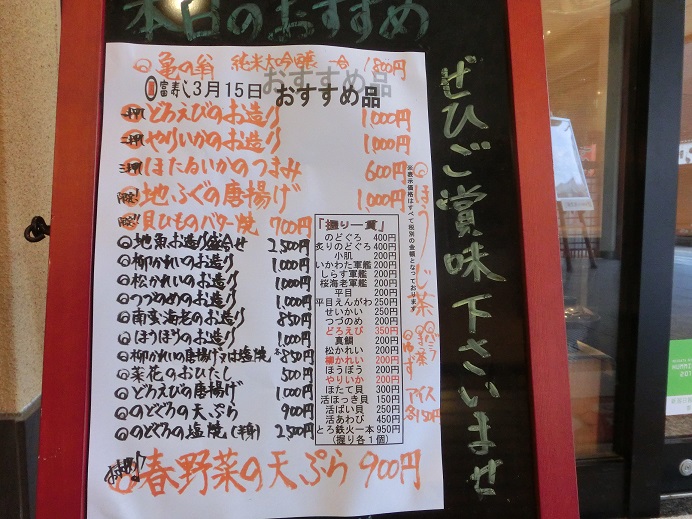 本日のおすすめ
亀の翁 純米大吟醸 一合 1800円
おすすめ品
富寿し3月15日 おすすめ品
一押 どろえびのお造り 1,000円
二押 やりいかのお造り 1,000円
三押 ほたるいかのつまみ 600円
限定! 地ふぐの唐揚げ 1,000円
限定!! 貝ひものバター焼 700円
地魚お造り盛合せ 2,500円
柳かれいのお造り 1,000円
松かれいのお造り 1,000円
つづめのお造り 1,000円
南蛮海老のお造り 850円
ほうぼうのお造り 1,000円
柳かれいの唐揚げ又は塩焼 850円
菜花のおひたし 500円
どろえびの唐揚げ 1,000円
のどぐろの天ぷら 900円
のどぐろの塩焼(半身) 2,500円
春野菜の天ぷら 900円
「握り一貫」
のどぐろ 400円
炙りのどぐろ 400円
小肌 200円
いかわた軍艦 200円
しらす軍艦 200円
桜海老軍艦 200円
平目 200円
平目えんがわ 250円
せいかい 250円
つづのめ 200円
どろえび 350円
真鯛 200円
松かれい 200円
柳かれい 200円
ほうぼう 200円
やりいか 200円
ほたて貝 300円
活ほっき貝 150円
活ばい貝 250円
活あわび 450円
とろ鉄火一本 950円
(握り各1個)
※表示価格はすべて税別の金額となっております
ほうじ茶
バニラ
抹茶
ゆず
アイス
各150円
ぜひご賞味下さいませ